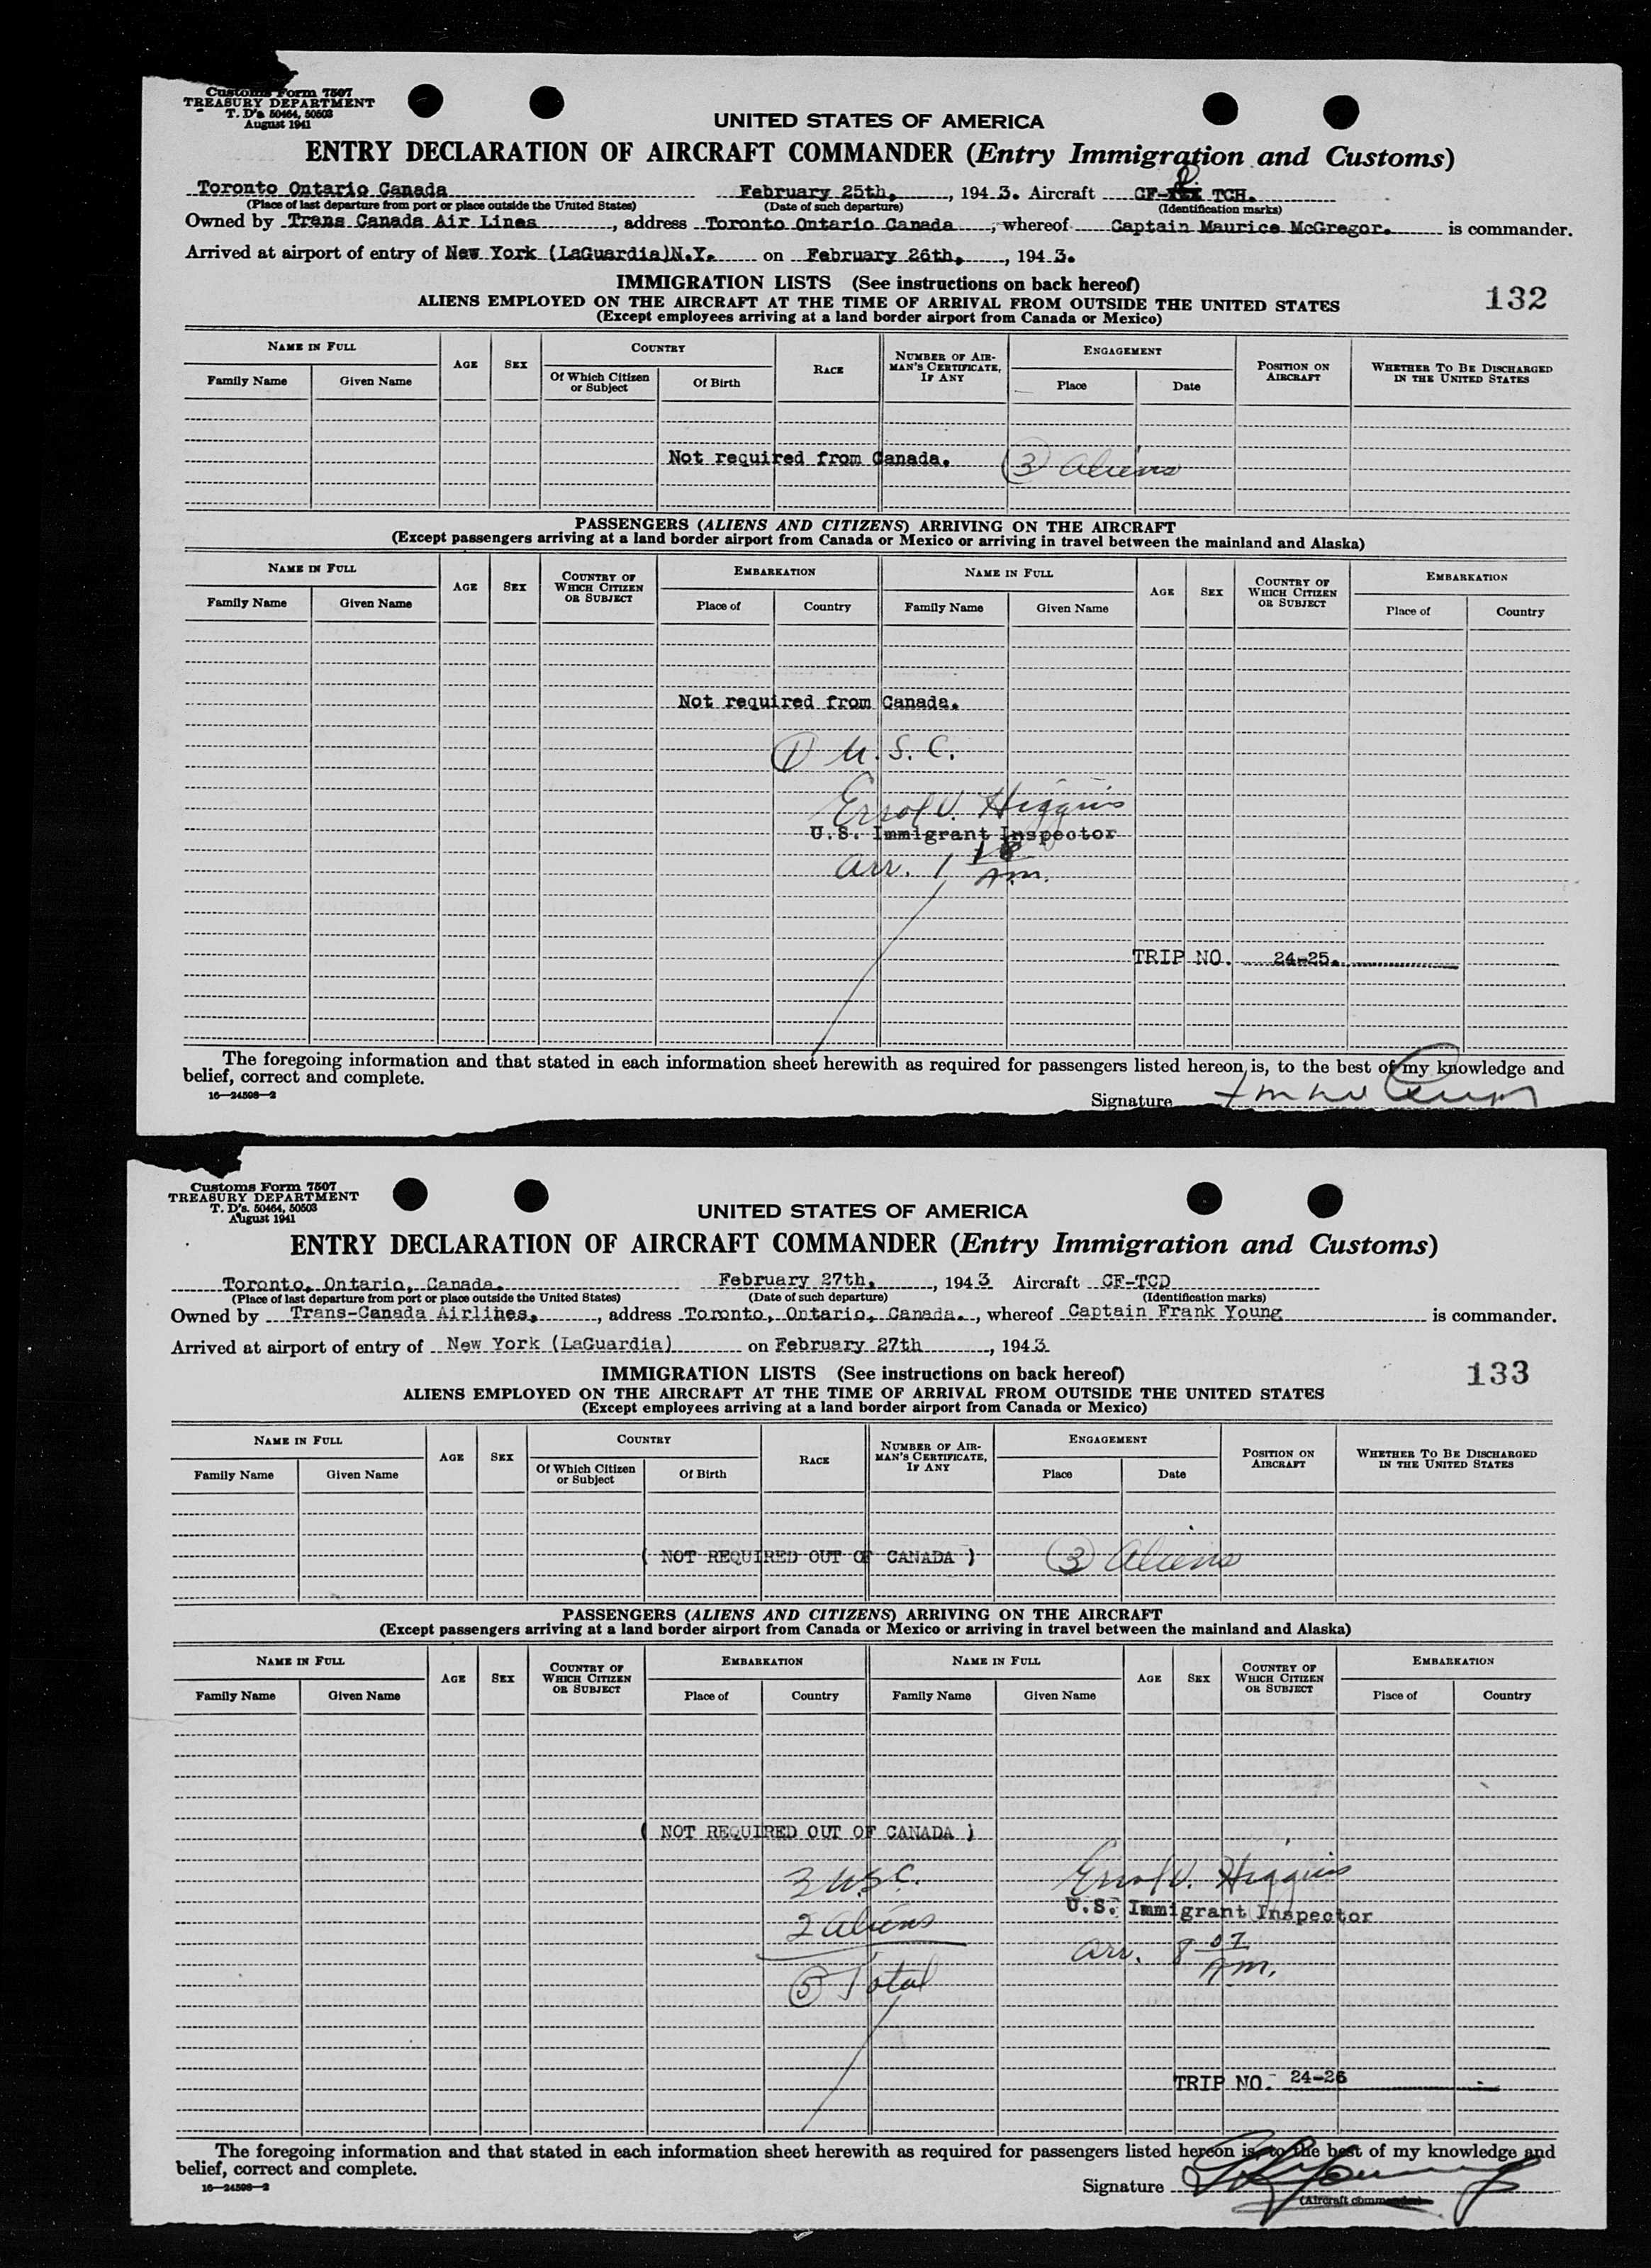 Customs Form 7507
TREASURY DEPARTMENT
T. D's 50464, 50503
August 1941
UNITED STATES OF AMERICA
ENTRY DECLARATION OF AIRCRAFT COMMANDER (Entry Immigration and Customs)
Toronto Ontario Canada February 25th, , 1943. Aircraft CF- TCH.
(Place of last departure from port or place outside the United States) (Date of such departure) (Identification marks)
Owned by Trans Canada Air Lines , address Toronto Ontario Canada , whereof Captain Maurice McGregor. is commander.
Arrived at airport of entry of New York (LaGuardia)N.Y. on February 26th, , 1943.
IMMIGRATION LISTS (See instructions on back hereof)
132
ALIENS EMPLOYED ON THE AIRCRAFT AT THE TIME OF ARRIVAL FROM OUTSIDE THE UNITED STATES
(Except employees arriving at a land border airport from Canada or Mexico)
NAME IN FULL AGE SEX COUNTRY RACE NUMBER OF AIRMAN'S CERTIFICATE, IF ANY ENGAGEMENT POSITION ON AIRCRAFT WHETHER TO BE DISCHARGED IN THE UNITED STATES
Family Name Given Name Of Which Citizen or Subject Of Birth Place Date
Not required from Canada. 3 Aliens
PASSENGERS (ALIENS AND CITIZENS) ARRIVING ON THE AIRCRAFT
(Except passengers arriving at a land border airport from Canada or Mexico or arriving in travel between the mainland and Alaska)
NAME IN FULL AGE SEX COUNTRY OF WHICH CITIZEN OR SUBJECT EMBARKATION NAME IN FULL AGE SEX COUNTRY OF WHICH CITIZEN OR SUBJECT EMBARKATION
Family Name Given Name Place of Country Family Name Given Name Place of Country
Not required from Canada.
1 U.S.C.
Errol V. Higgins
U.S. Immigrant Inspector
arr. 1 AM.
TRIP NO. 24-25.
The foregoing information and that stated in each information sheet herewith as required for passengers listed hereon is, to the best of my knowledge and
belief, correct and complete.
16—24598-2
Signature
Customs Form 7507
TREASURY DEPARTMENT
T. D's. 50464, 50503
August 1941
UNITED STATES OF AMERICA
ENTRY DECLARATION OF AIRCRAFT COMMANDER (Entry Immigration and Customs)
Toronto, Ontario, Canada. February 27th, , 1943 Aircraft CF-TCD
(Place of last departure from port or place outside the United States) (Date of such departure) (Identification marks)
Owned by Trans-Canada Airlines, , address Toronto, Ontario, Canada. , whereof Captain Frank Young is commander.
Arrived at airport of entry of New York (LaGuardia) on February 27th , 1943
IMMIGRATION LISTS (See instructions on back hereof)
133
ALIENS EMPLOYED ON THE AIRCRAFT AT THE TIME OF ARRIVAL FROM OUTSIDE THE UNITED STATES
(Except employees arriving at a land border airport from Canada or Mexico)
NAME IN FULL AGE SEX COUNTRY RACE NUMBER OF AIRMAN'S CERTIFICATE, IF ANY ENGAGEMENT POSITION ON AIRCRAFT WHETHER TO BE DISCHARGED IN THE UNITED STATES
Family Name Given Name Of Which Citizen or Subject Of Birth Place Date
( NOT REQUIRED OUT OF CANADA ) 3 Aliens
PASSENGERS (ALIENS AND CITIZENS) ARRIVING ON THE AIRCRAFT
(Except passengers arriving at a land border airport from Canada or Mexico or arriving in travel between the mainland and Alaska)
NAME IN FULL AGE SEX COUNTRY OF WHICH CITIZEN OR SUBJECT EMBARKATION NAME IN FULL AGE SEX COUNTRY OF WHICH CITIZEN OR SUBJECT EMBARKATION
Family Name Given Name Place of Country Family Name Given Name Place of Country
( NOT REQUIRED OUT OF CANADA )
3 USC. Errol V. Higgins
U.S. Immigrant Inspector
2 aliens
arr. 8 07 AM.
5 Total
TRIP NO. 24-26
The foregoing information and that stated in each information sheet herewith as required for passengers listed hereon is, to the best of my knowledge and
belief, correct and complete.
16—24598-2
Signature Young
(Aircraft commander)